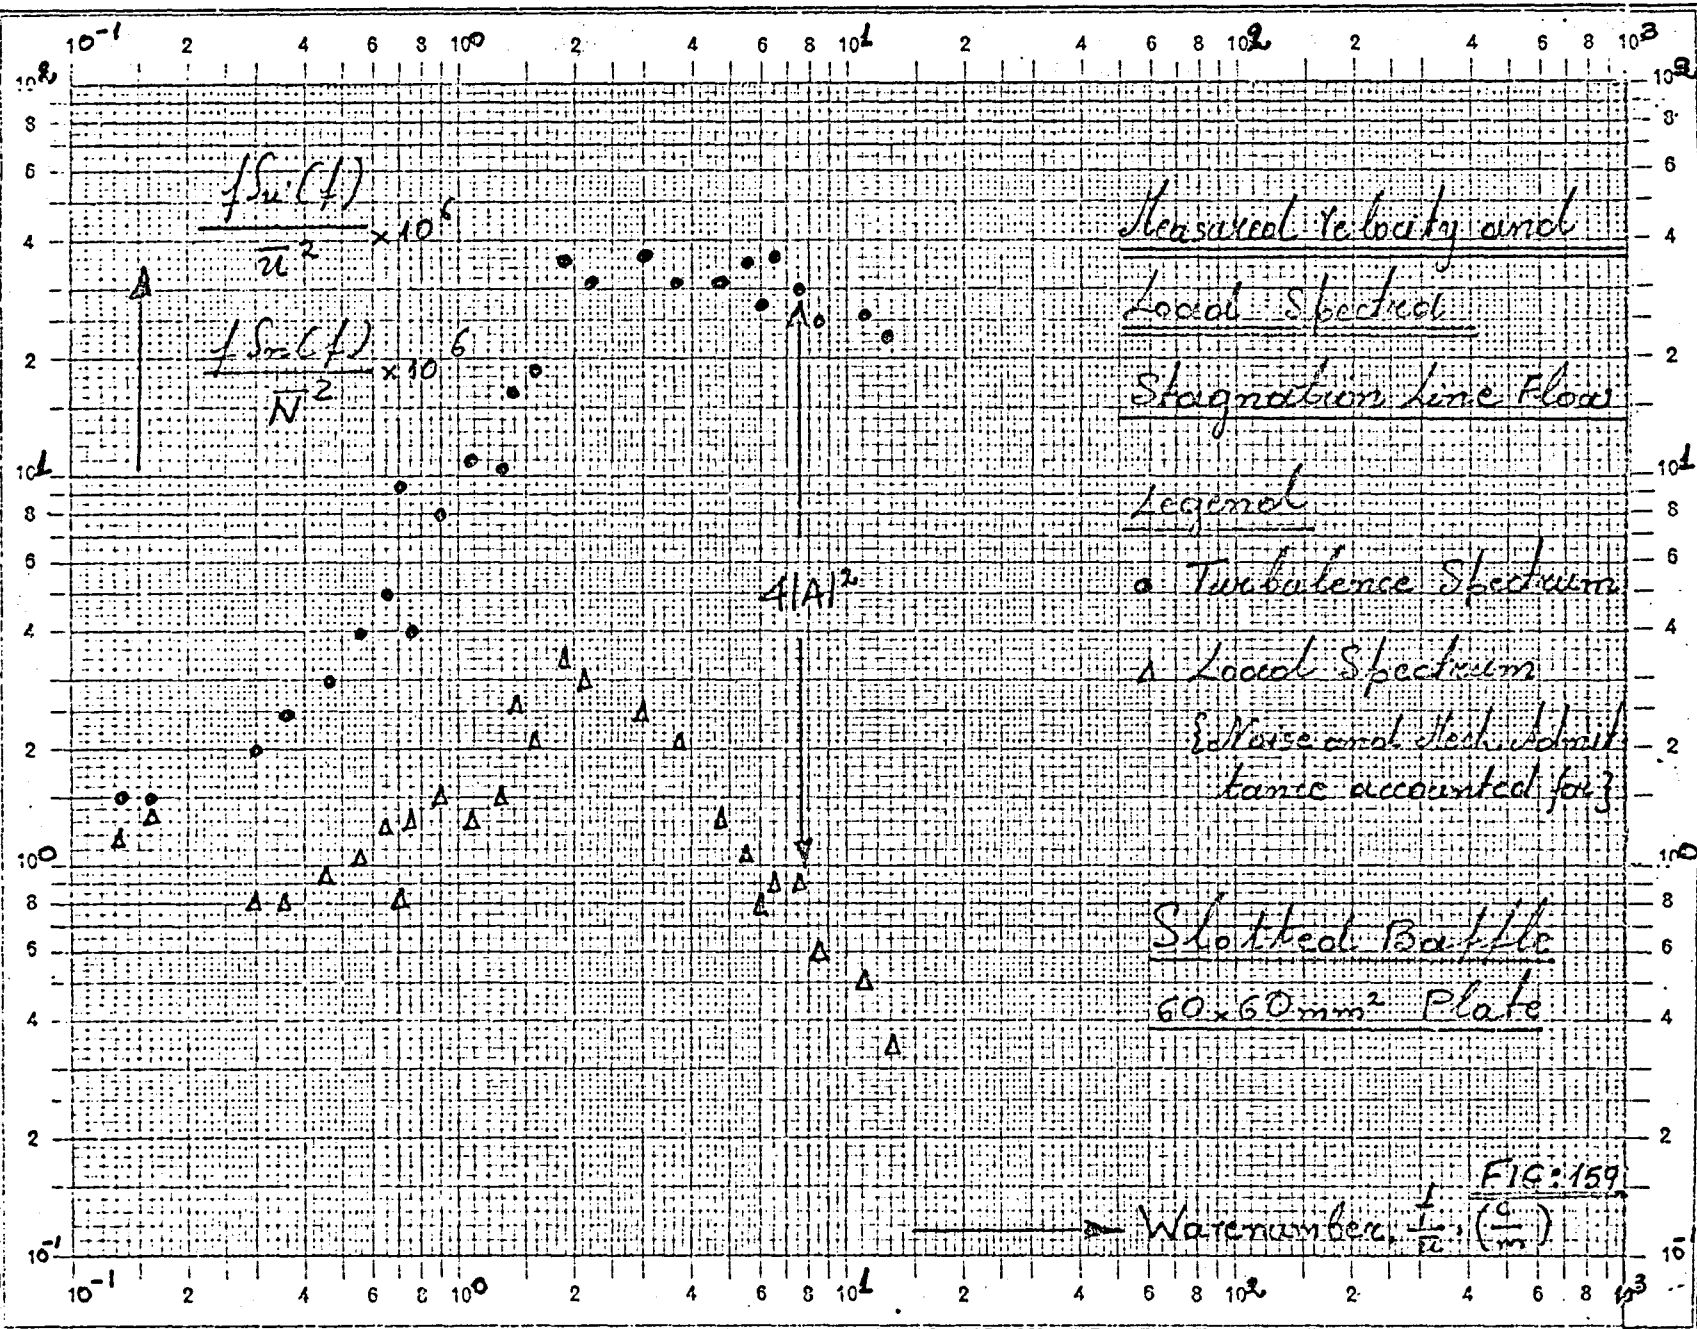 10-1 2 4 6 8 100 2 4 6 8 101 2 4 6 8 102 2 4 6 8 103
102 8 6 4 2 101 8 6 4 2 100 8 6 4 2 10-1
f Su'(f) / u̅2 × 106
f Sn(f) / N̅2 × 106
4|A|2
Measured Velocity and
Load Spectra
Stagnation Line Flow
Legend
o Turbulence Spectrum
Δ Load Spectrum
{Noise and Mech. Admit
tance accounted for}
Slotted Baffle
60x60mm2 Plate
FIG:159
Wavenumber, f/u̅, (c/m)
102 8 6 4 2 101 8 6 4 2 100 8 6 4 2 10-1
10-1 2 4 6 8 100 2 4 6 8 101 2 4 6 8 102 2 4 6 8 103